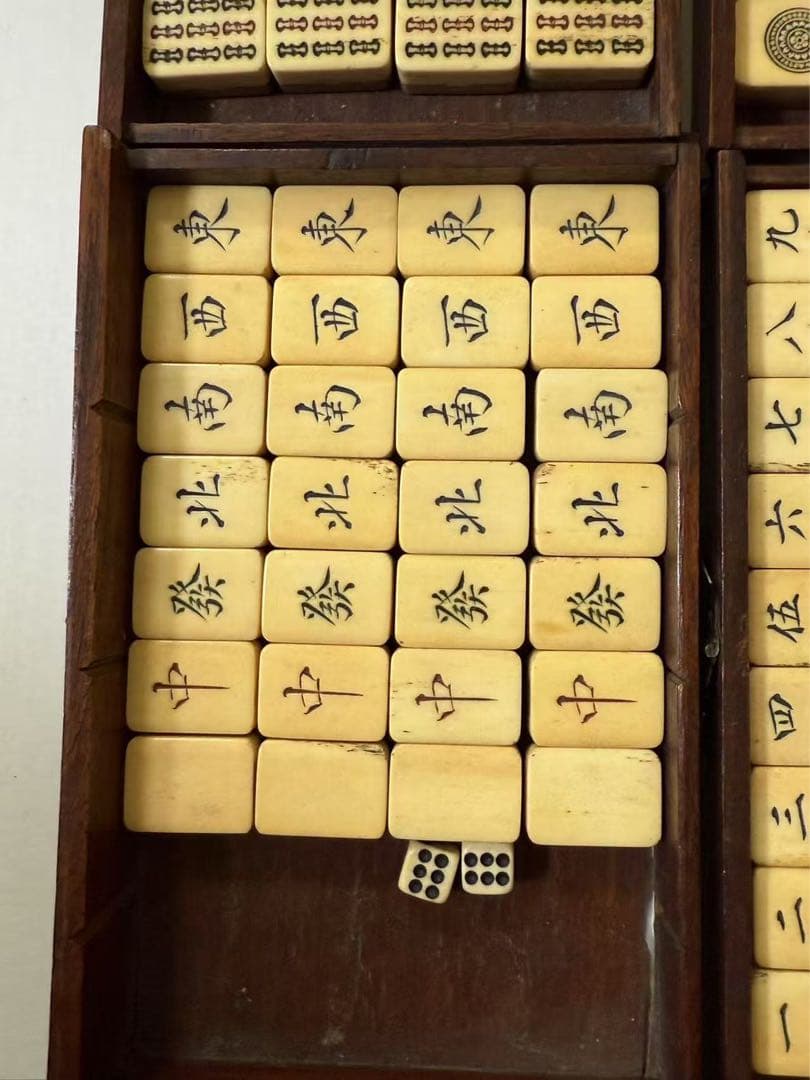 東 東 東 東
西 西 西 西
南 南 南 南
北 北 北 北
發 發 發 發
中 中 中 中
九
八
七
六
伍
四
三
二
一